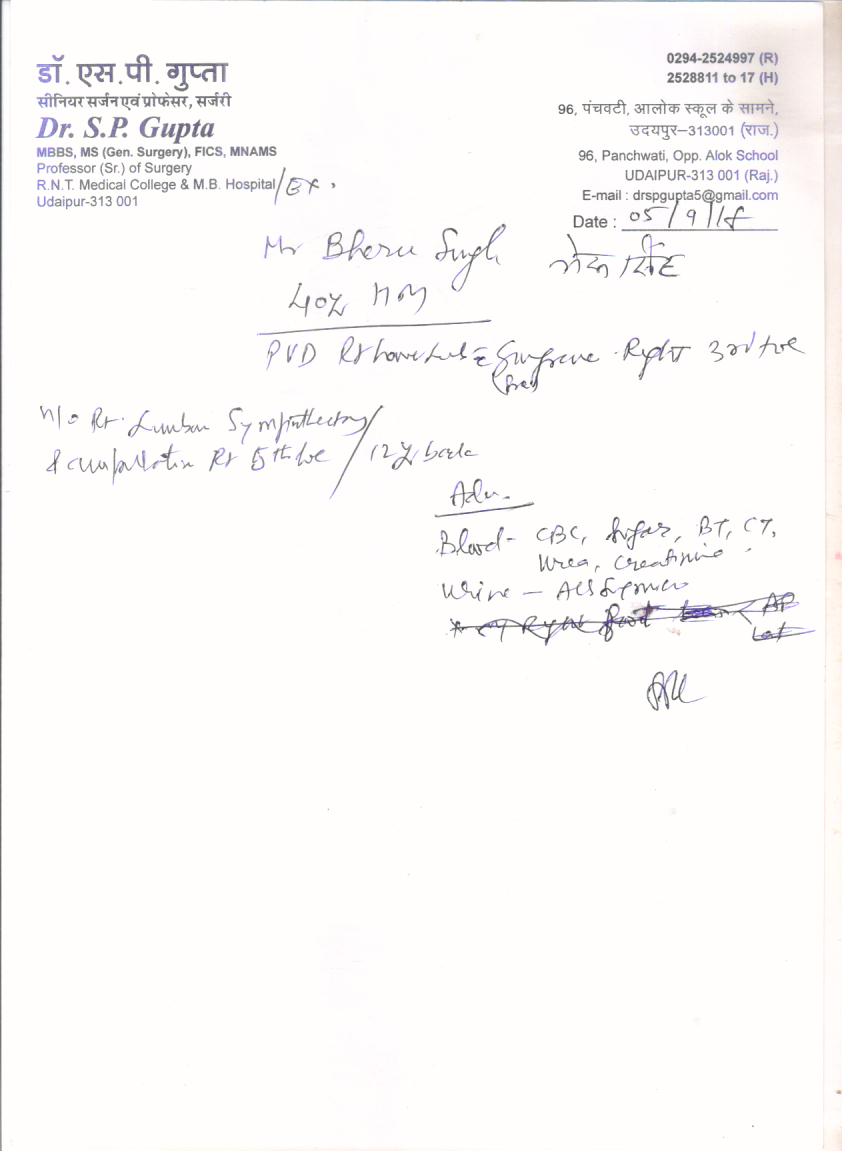 डॉ. एस.पी. गुप्ता
सीनियर सर्जन एवं प्रोफेसर, सर्जरी
Dr. S.P. Gupta
MBBS, MS (Gen. Surgery), FICS, MNAMS
Professor (Sr.) of Surgery
R.N.T. Medical College & M.B. Hospital/Ex.
Udaipur-313 001
0294-2524997 (R)
2528811 to 17 (H)
96, पंचवटी, आलोक स्कूल के सामने,
उदयपुर–313001 (राज.)
96, Panchwati, Opp. Alok School
UDAIPUR-313 001 (Raj.)
E-mail : drspgupta5@gmail.com
Date : 05/9/18
Mr Bheru Singh
40y
PVD Rt Gangrene Right 3rd toe
H/o Rt. Lumbar Sympathectomy
& amputation Rt 5th toe / 12 y back
Adv.
Blood - CBC, Sugar, BT, CT,
Urea, Creatinine
Urine -
Right foot AP
Lat